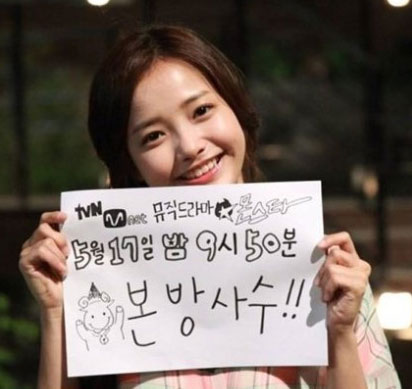 tvN Mnet 뮤직드라마 몬스타
5월 17일 밤 9시 50분
본방사수!!